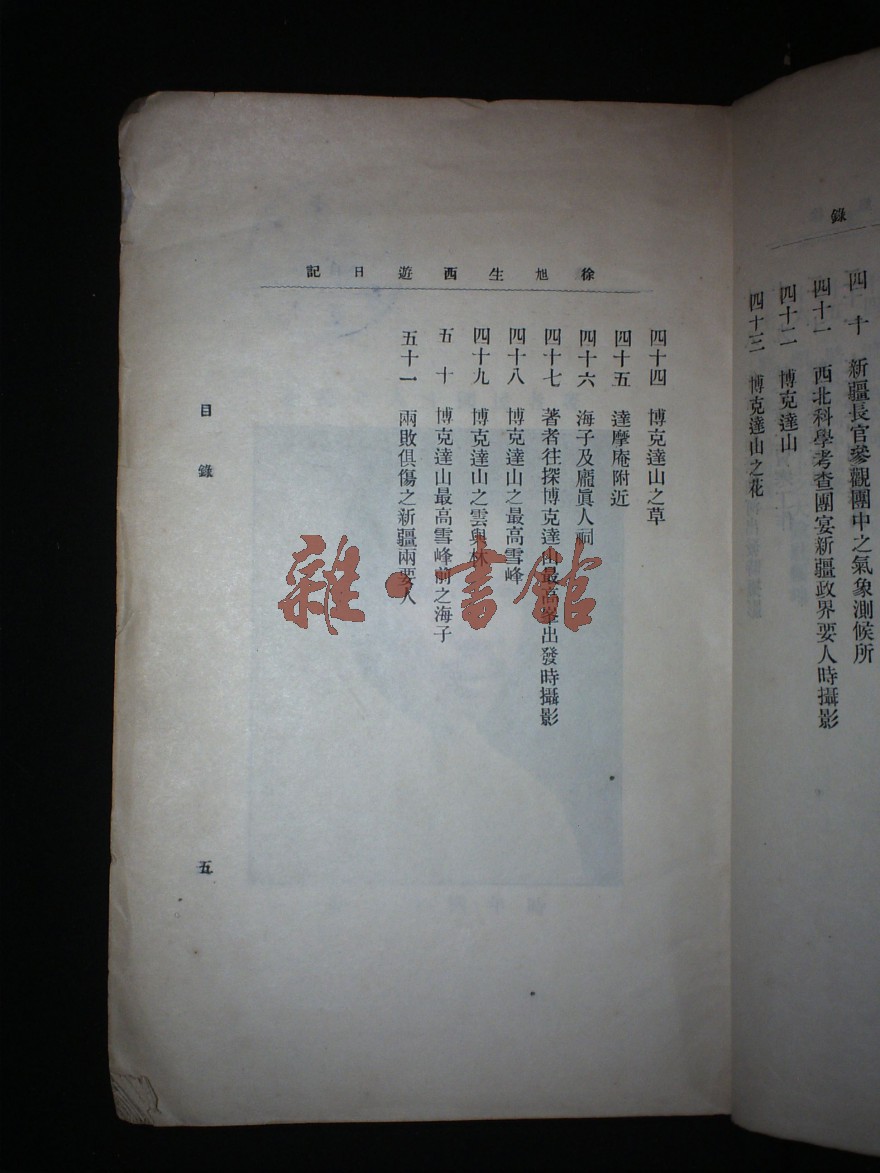 錄
四十 新疆長官參觀團中之氣象測候所
四十一 西北科學考查團宴新疆政界要人時攝影
四十二 博克達山
四十三 博克達山之花
徐旭生西遊日記
四十四 博克達山之草
四十五 達摩庵附近
四十六 海子及龐眞人祠
四十七 著者往探博克達山最高峯出發時攝影
四十八 博克達山之最高雪峰
四十九 博克達山之雲與林
五十 博克達山最高雪峰前之海子
五十一 兩敗俱傷之新疆兩要人
目錄
五
雜·書館